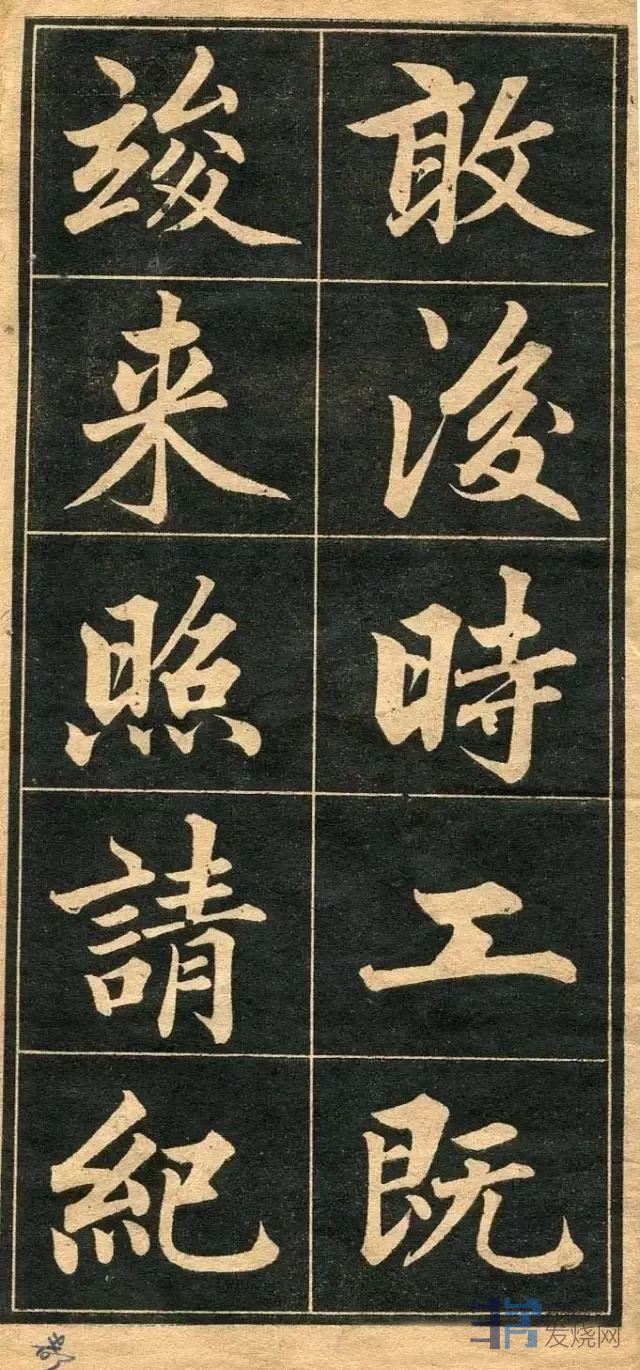 敢後時工既
竣来照請紀
非常发烧网